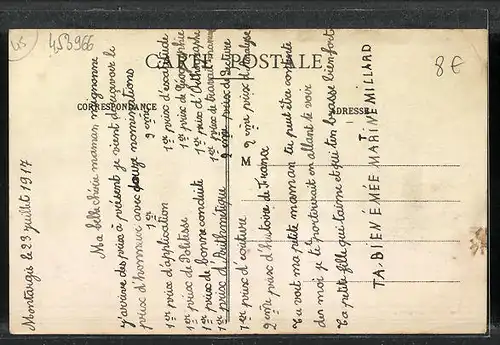 45
453966
8€
CARTE POSTALE
CORRESPONDANCE
ADRESSE
M
Montargis le 23 juillet 1917
Ma belle chérie maman mignonne
j'arrive des prix à présent je vient de reçevoir le
prix d'honneur avec douze nominations
1er
2ème
1er prix d'application
1er prix d'exactitude
1er prix de Politesse
1er prix de Géographie
1er prix de bonne conduite
1er prix d'Orthographe
1er prix d'Arithmétique
1er prix de travail manuel
2ème prix de Lecture
1er prix d'écriture
2ème prix d'Analyse
2ème prix d'histoire de France
Tu voit ma petite maman tu peut être contente
de moi je te porterait en allant te voir
Ta petite fille qui t'aime et qui t'embrasse bien fort
TA BIEN ÉMÉE MARTINE MILLARD